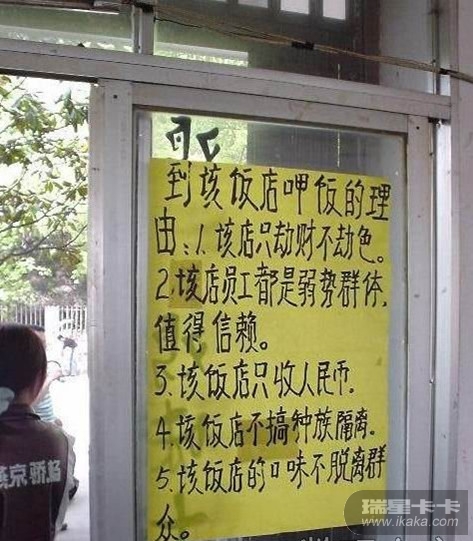 到该饭店呷饭的理
由:1.该店只劫财不劫色。
2.该店员工都是弱势群体,
值得信赖。
3.该饭店只收人民币.
4.该饭店不搞种族隔离.
5.该饭店的口味不脱离群
众。
京骄
瑞星卡卡
www.ikaka.com